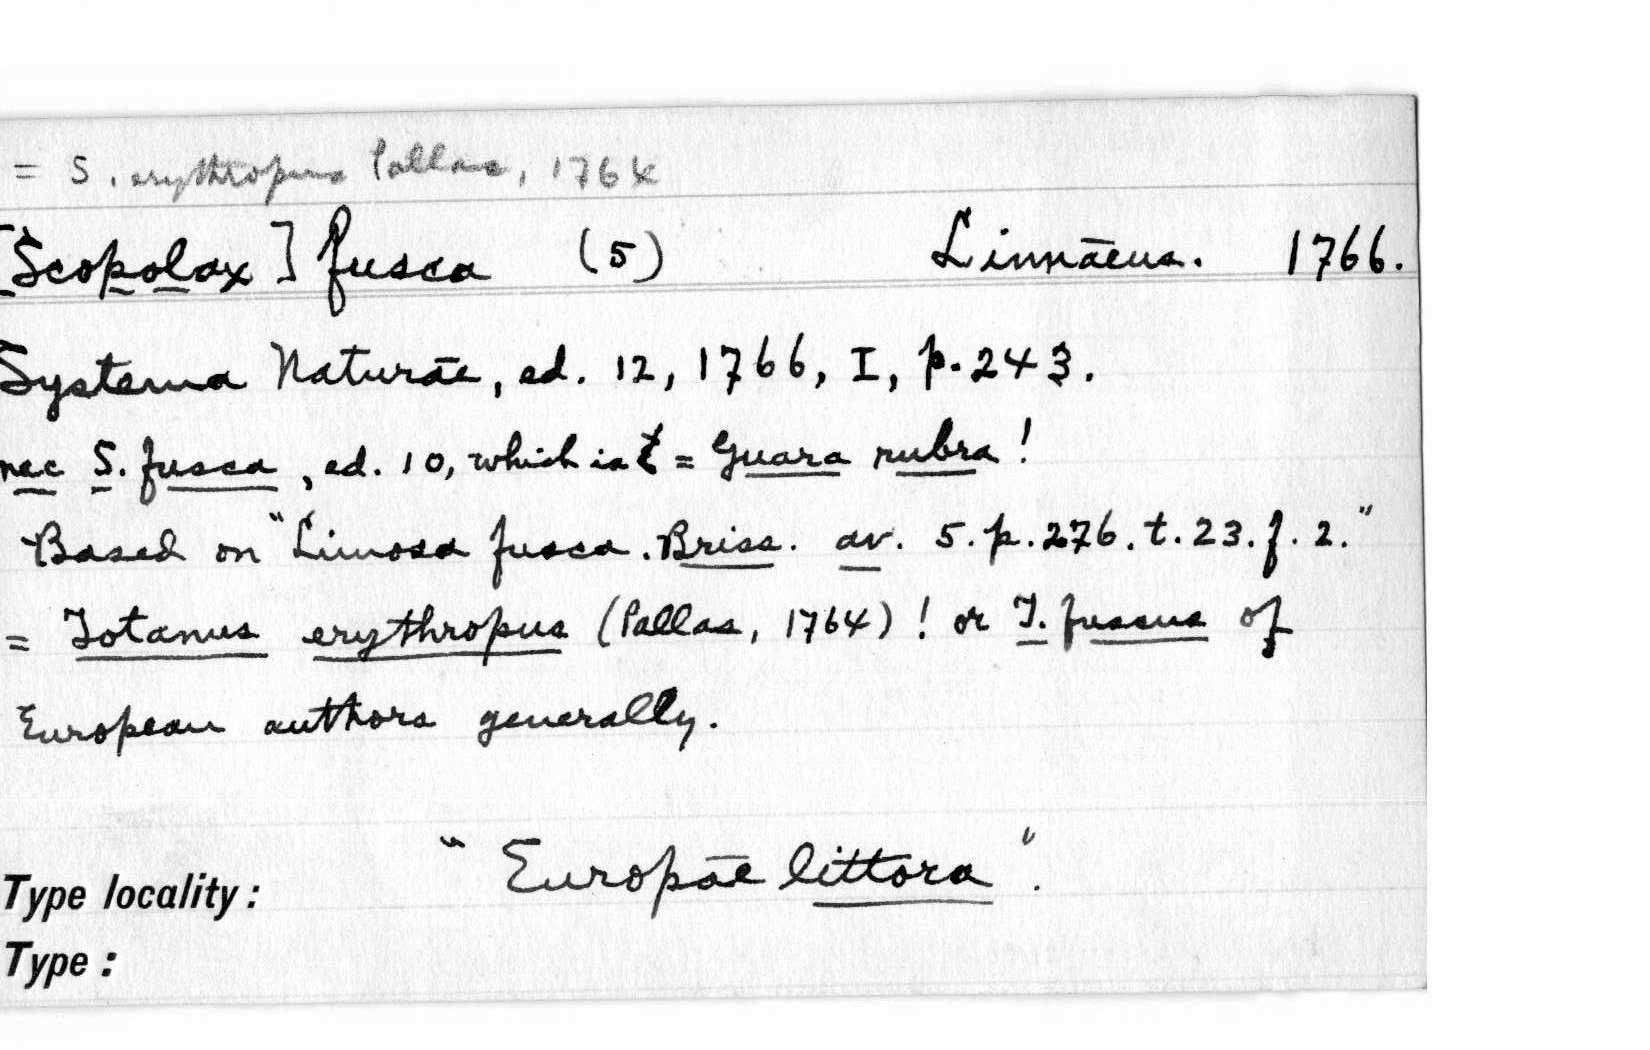 = S. erythropus Pallas, 1764
[Scopolax] fusca (5) Linnāeus. 1766.
Systema Naturāe, ed. 12, 1766, I, p. 243.
nec S. fusca, ed. 10, which is = Guara rubra!
Based on "Limosa fusca. Briss. av. 5. p. 276. t. 23. f. 2."
= Totanus erythropus (Pallas, 1764)! or T. fuscus of
European authors generally.
"Europāe littora".
Type locality:
Type: